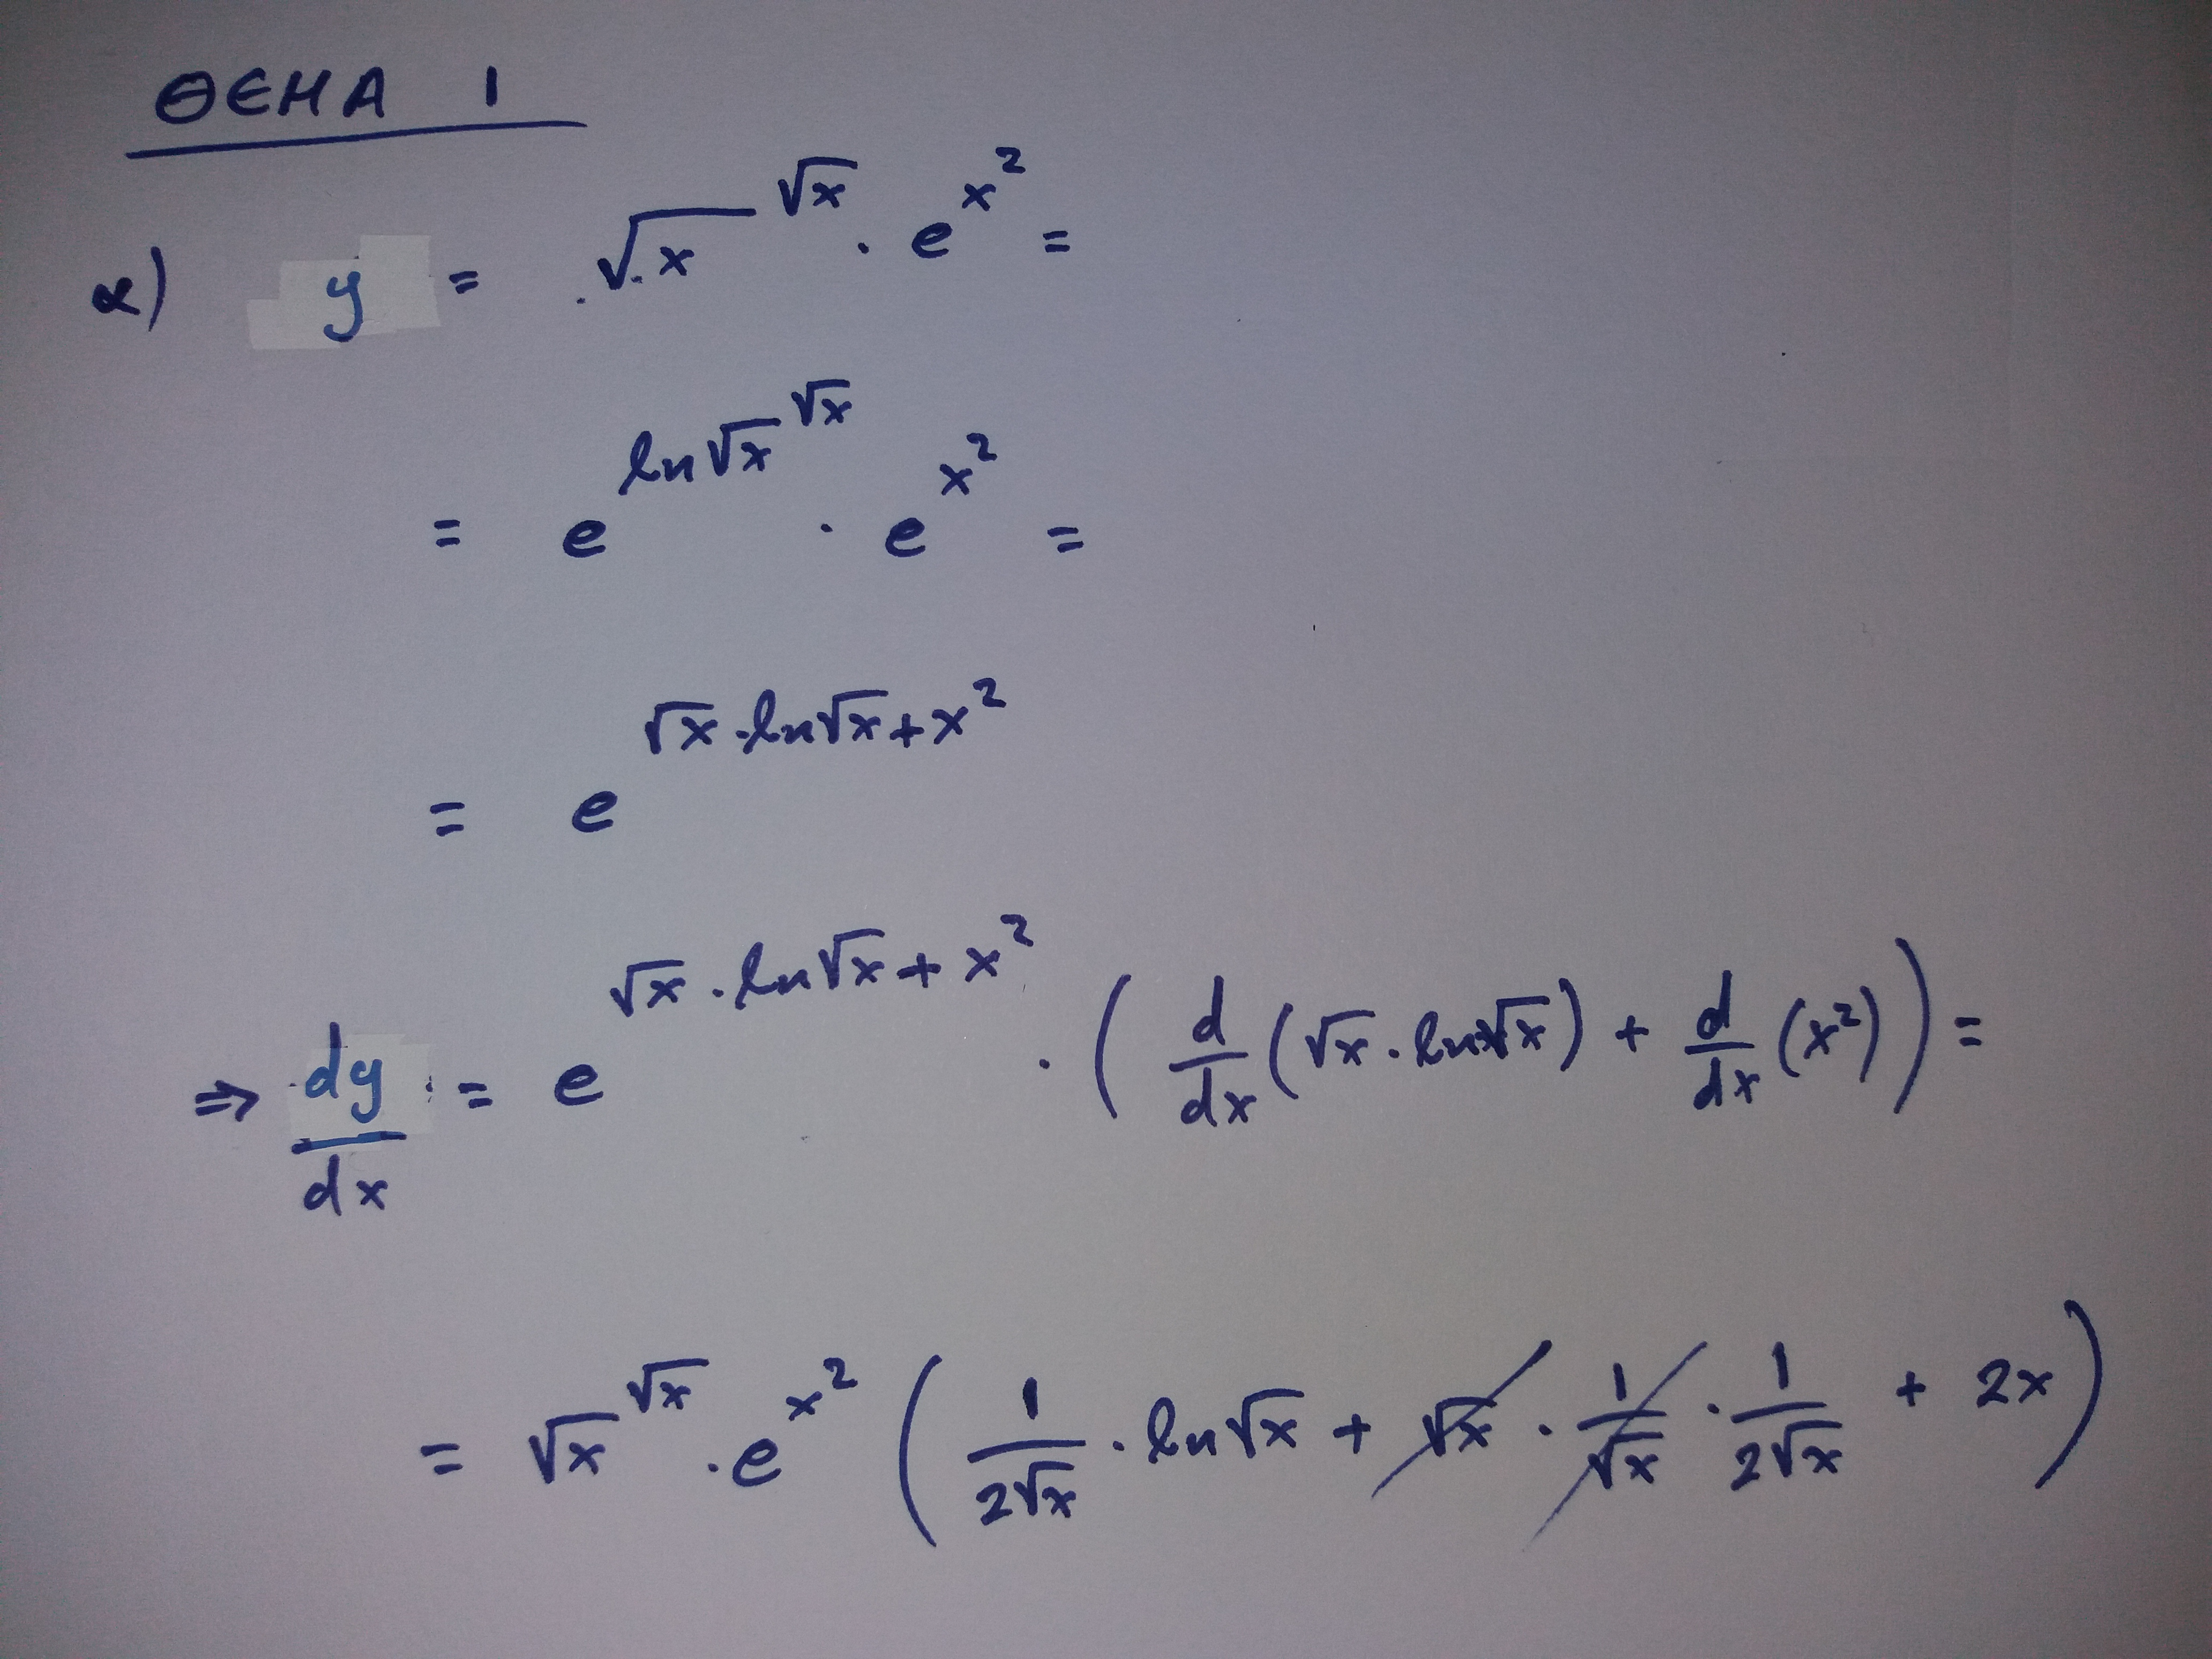 ΘΕΜΑ 1
α) y = √x^√x · e^x² =
= e^(ln√x^√x) · e^x² =
= e^(√x·ln√x+x²)
⇒ dy/dx = e^(√x·ln√x+x²) · (d/dx(√x·ln√x) + d/dx(x²)) =
= √x^√x · e^x² (1/(2√x) · ln√x + √x · 1/√x · 1/(2√x) + 2x)